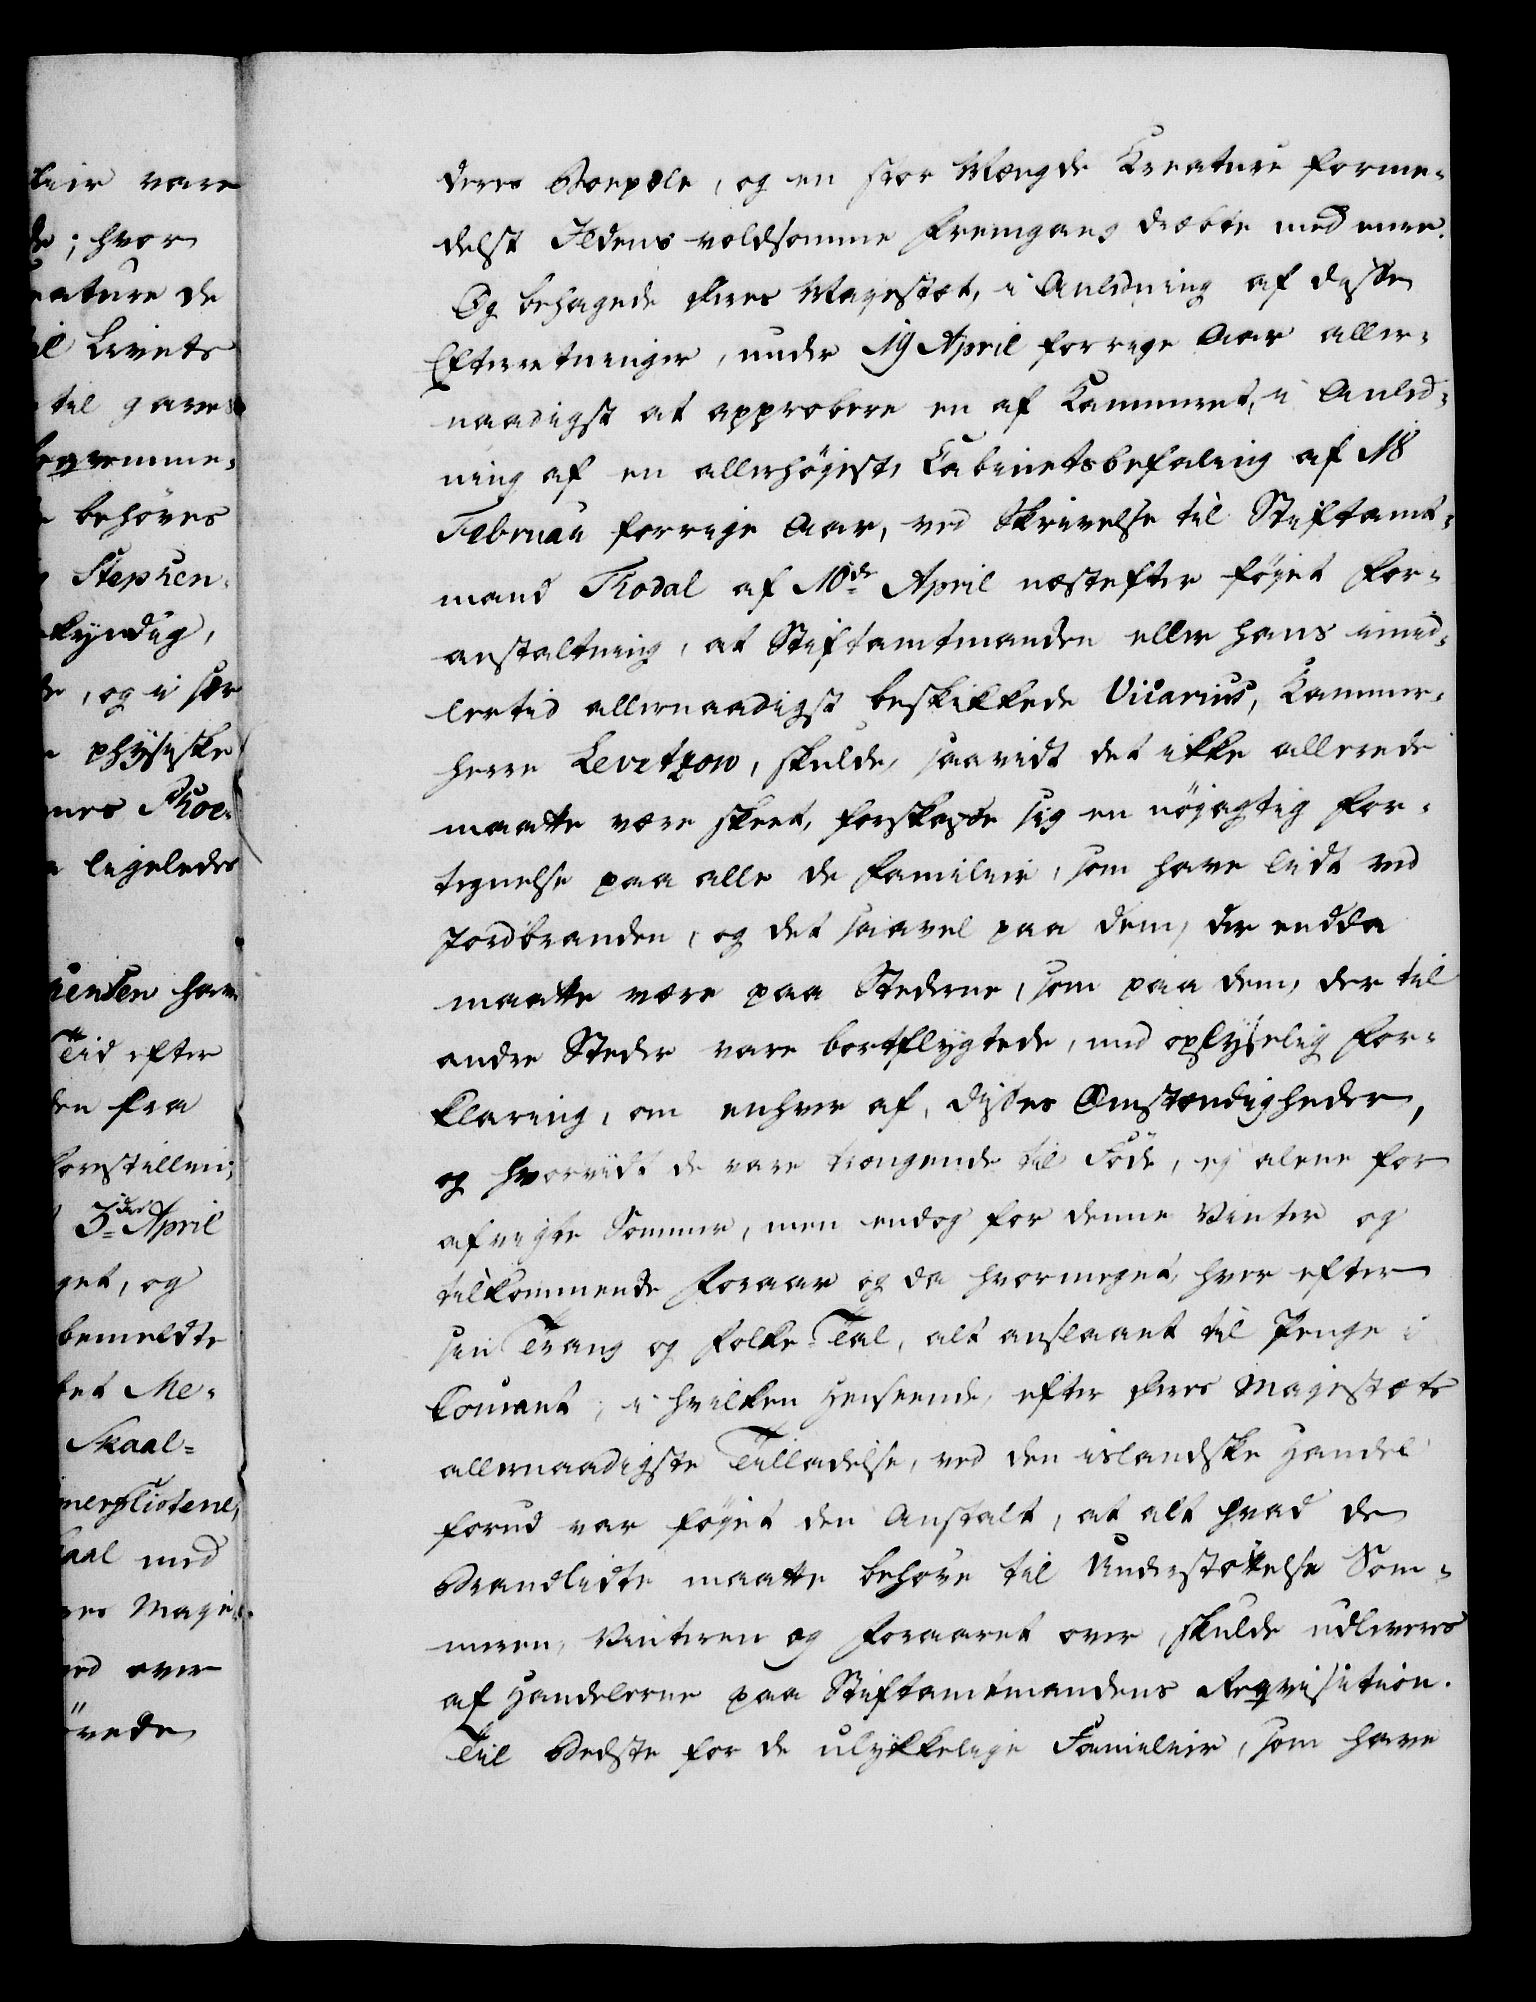 leir vare
de; hvor
eature de
il Livets
til gaves
behöves
Stephen-
kyndig,
de, og i sær
physiske
ligeledes
hensen have
Tid efter
den fra
forestilling
3die April
get, og
bemeldte
tet Me-
Skaal-
aal med
res Maje-
ed over
övede
deres Boepæle, og en stor Mængde Kreature forme-
delst Ildens voldsomme Fremgang dræbte med mere.
Og behagede Deres Majestæt, i Anledning af disse
Efterretninger, under 19 April forrige Aar aller-
naadigst at approbere en af Kammeret, i Anled-
ning af en allerhöjeste Cabinetsbefaling af 18
Februarii forrige Aar, ved Skrivelse til Stiftamt-
mand Thodal af 10de April næstefter föjet For-
anstaltning, at Stiftamtmanden eller hans imid-
lertid allernaadigst beskikkede Vicarius, Kammer-
herre Levetzow, skulde, saavidt det ikke allerede
maatte være skeet, forskaffe sig en nöjagtig For-
tegnelse paa alle de Familier, som have lidt ved
Jordbranden, og det saavel paa dem, der endda
maatte være paa Stederne, som paa dem, der til
andre Steder vare bortflygtede, med oplyselig For-
klaring, om enhver af disses Omstændigheder,
og hvorvidt de vare trængende til Föde, ej alene for
afvigte Sommer, men endog for denne Vinter og
tilkommende Foraar og da hvormeget, hver efter
sin Trang og Folke-Tal, alt anslaaet til Penge i
Courant; i hvilken Henseende, efter Deres Majestæts
allernaadigste Tilladelse, ved den islandske Handel
forud var föjet den Anstalt, at alt hvad de
Brandlidte maatte behöve til Understöttelse Som-
meren, Vinteren og Foraaret over, skulde udleveres
af Handelerne paa Stiftamtmandens Reqvisition.
Til Bedste for de ulykkelige Familier, som have